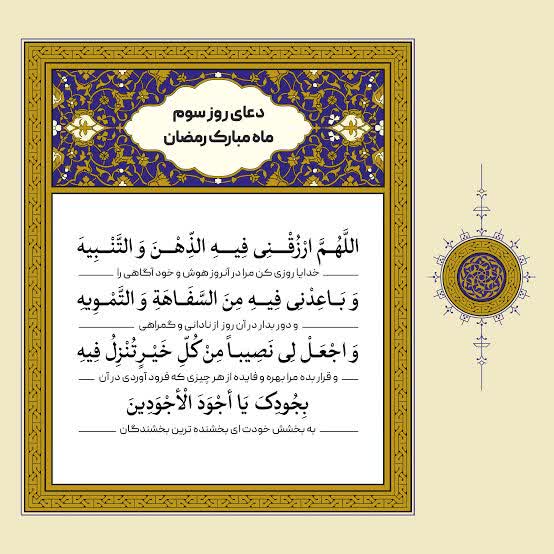 دعای روز سوم
ماه مبارک رمضان
اللَّهُمَّ ارْزُقْنِی فِیهِ الذِّهْنَ وَ التَّنْبِیهَ
خدایا روزی کن مرا در آنروز هوش و خود آگاهی را
وَ بَاعِدْنِی فِیهِ مِنَ السَّفَاهَةِ وَ التَّمْوِیهِ
و دور بدار در آن روز از نادانی و گمراهی
وَ اجْعَلْ لِی نَصِیباً مِنْ کُلِّ خَیْرٍ تُنْزِلُ فِیهِ
و قرار بده مرا بهره و فایده از هر چیزی که فرود آوردی در آن
بِجُودِکَ یَا أَجْوَدَ الْأَجْوَدِینَ
به بخشش خودت ای بخشنده ترین بخشندگان